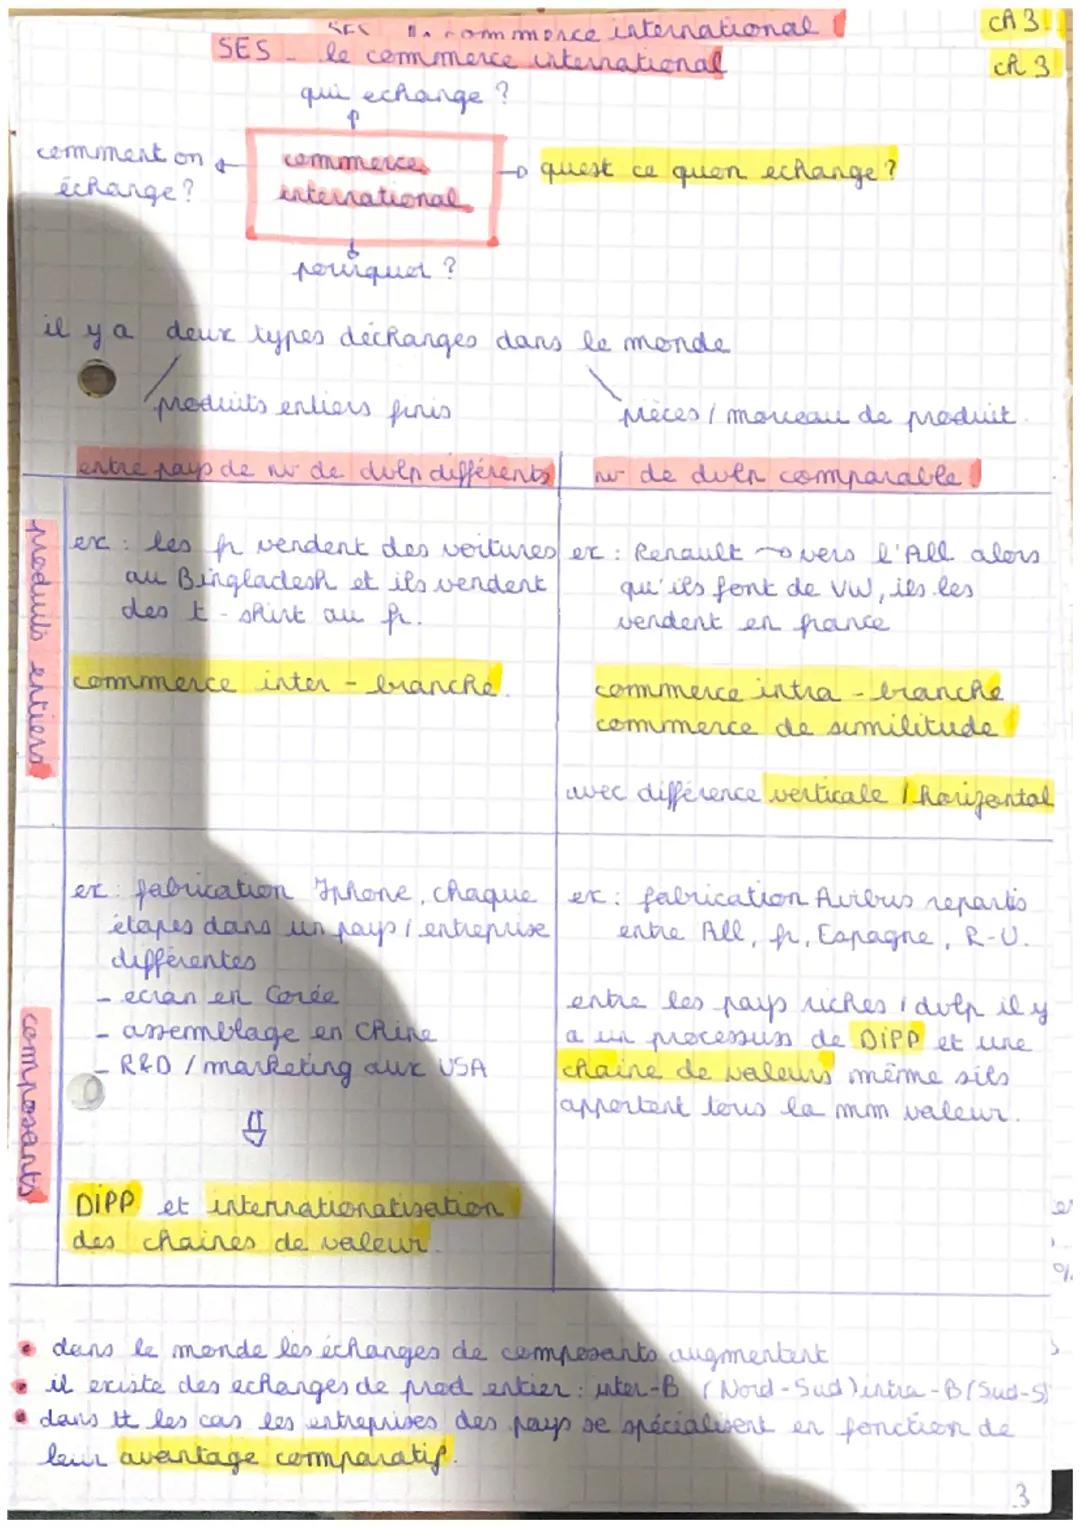 SES commerce international
CA 3
SES - le commerce international
ch 3
qui echange ?
comment on échange ?
commerce international
quest ce quon echange ?
pourquoi ?
il y a deux types déchanges dans le monde
produits entiers finis
pièces / morceau de produit.
entre pays de nv de dvlp différents
nv de dvlp comparable
produits entiers
ex : les fr vendent des voitures
au Bingladesh et ils vendent
des t-shirt au fr.
commerce inter-branche.
ex : Renault → vers l'All alors
qu'ils font de VW, ils les
vendent en france
commerce intra-branche
commerce de similitude
avec différence verticale / horizontal
composants
ex : fabrication Iphone, chaque
étapes dans un pays / entreprise
différentes
- ecran en Corée
- assemblage en Chine
- R&D / marketing aux USA
DIPP et internationatisation
des chaines de valeur.
ex : fabrication Airbus repartis
entre All, fr, Espagne, R-U.
entre les pays riches / dvlp il y
a un processus de DIPP et une
chaine de valeurs même sils
apportent tous la mm valeur.
• dans le monde les échanges de composants augmentent
• il existe des echanges de prod entier : inter-B (Nord-Sud) intra-B (Sud-S)
• dans tt les cas les entreprises des pays se spécialisent en fonction de
leur avantage comparatif.
3